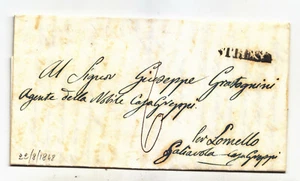 STRESA
Al Signor Giuseppe Grategnini
Agente della Nobile Casa Greppi
Per Lomello
Galiavola Casa Greppi
22/8/1848